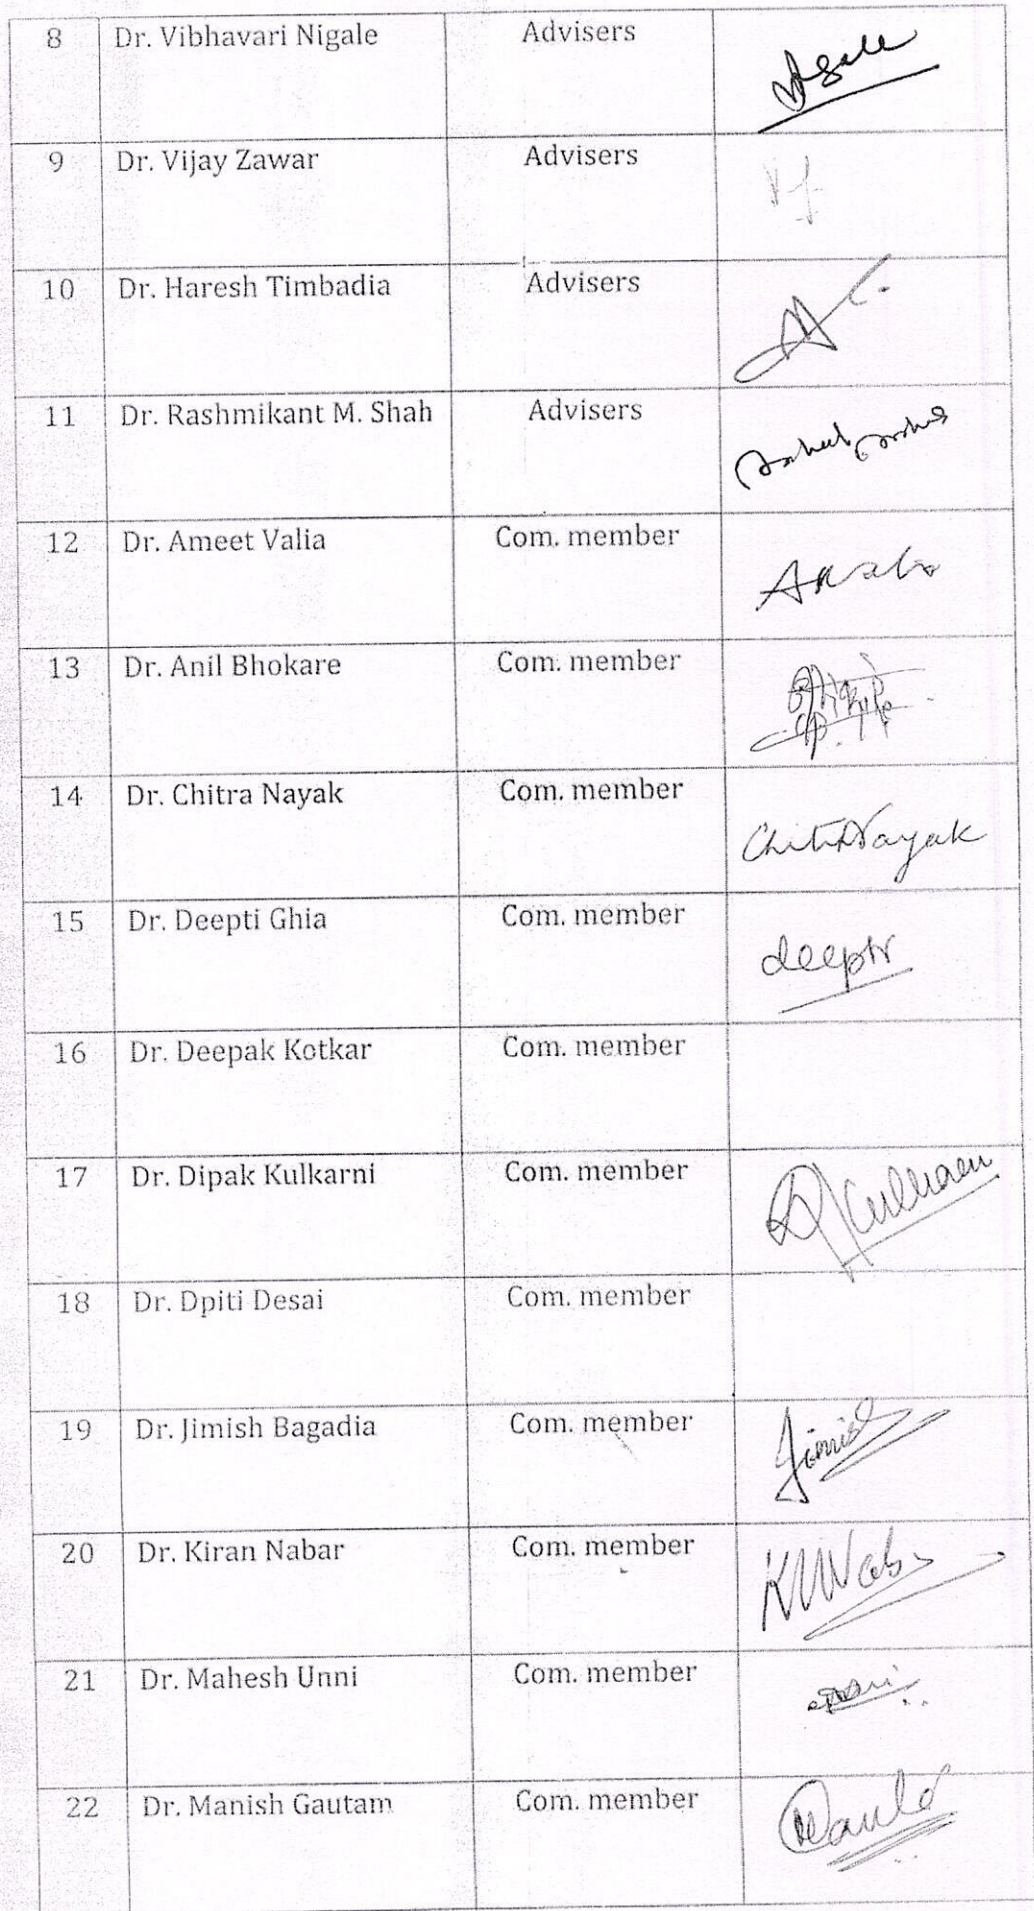 8 Dr. Vibhavari Nigale Advisers
9 Dr. Vijay Zawar Advisers
10 Dr. Haresh Timbadia Advisers
11 Dr. Rashmikant M. Shah Advisers
12 Dr. Ameet Valia Com. member
13 Dr. Anil Bhokare Com. member
14 Dr. Chitra Nayak Com. member ChitraNayak
15 Dr. Deepti Ghia Com. member deepti
16 Dr. Deepak Kotkar Com. member
17 Dr. Dipak Kulkarni Com. member
18 Dr. Dpiti Desai Com. member
19 Dr. Jimish Bagadia Com. member Jimish
20 Dr. Kiran Nabar Com. member
21 Dr. Mahesh Unni Com. member
22 Dr. Manish Gautam Com. member